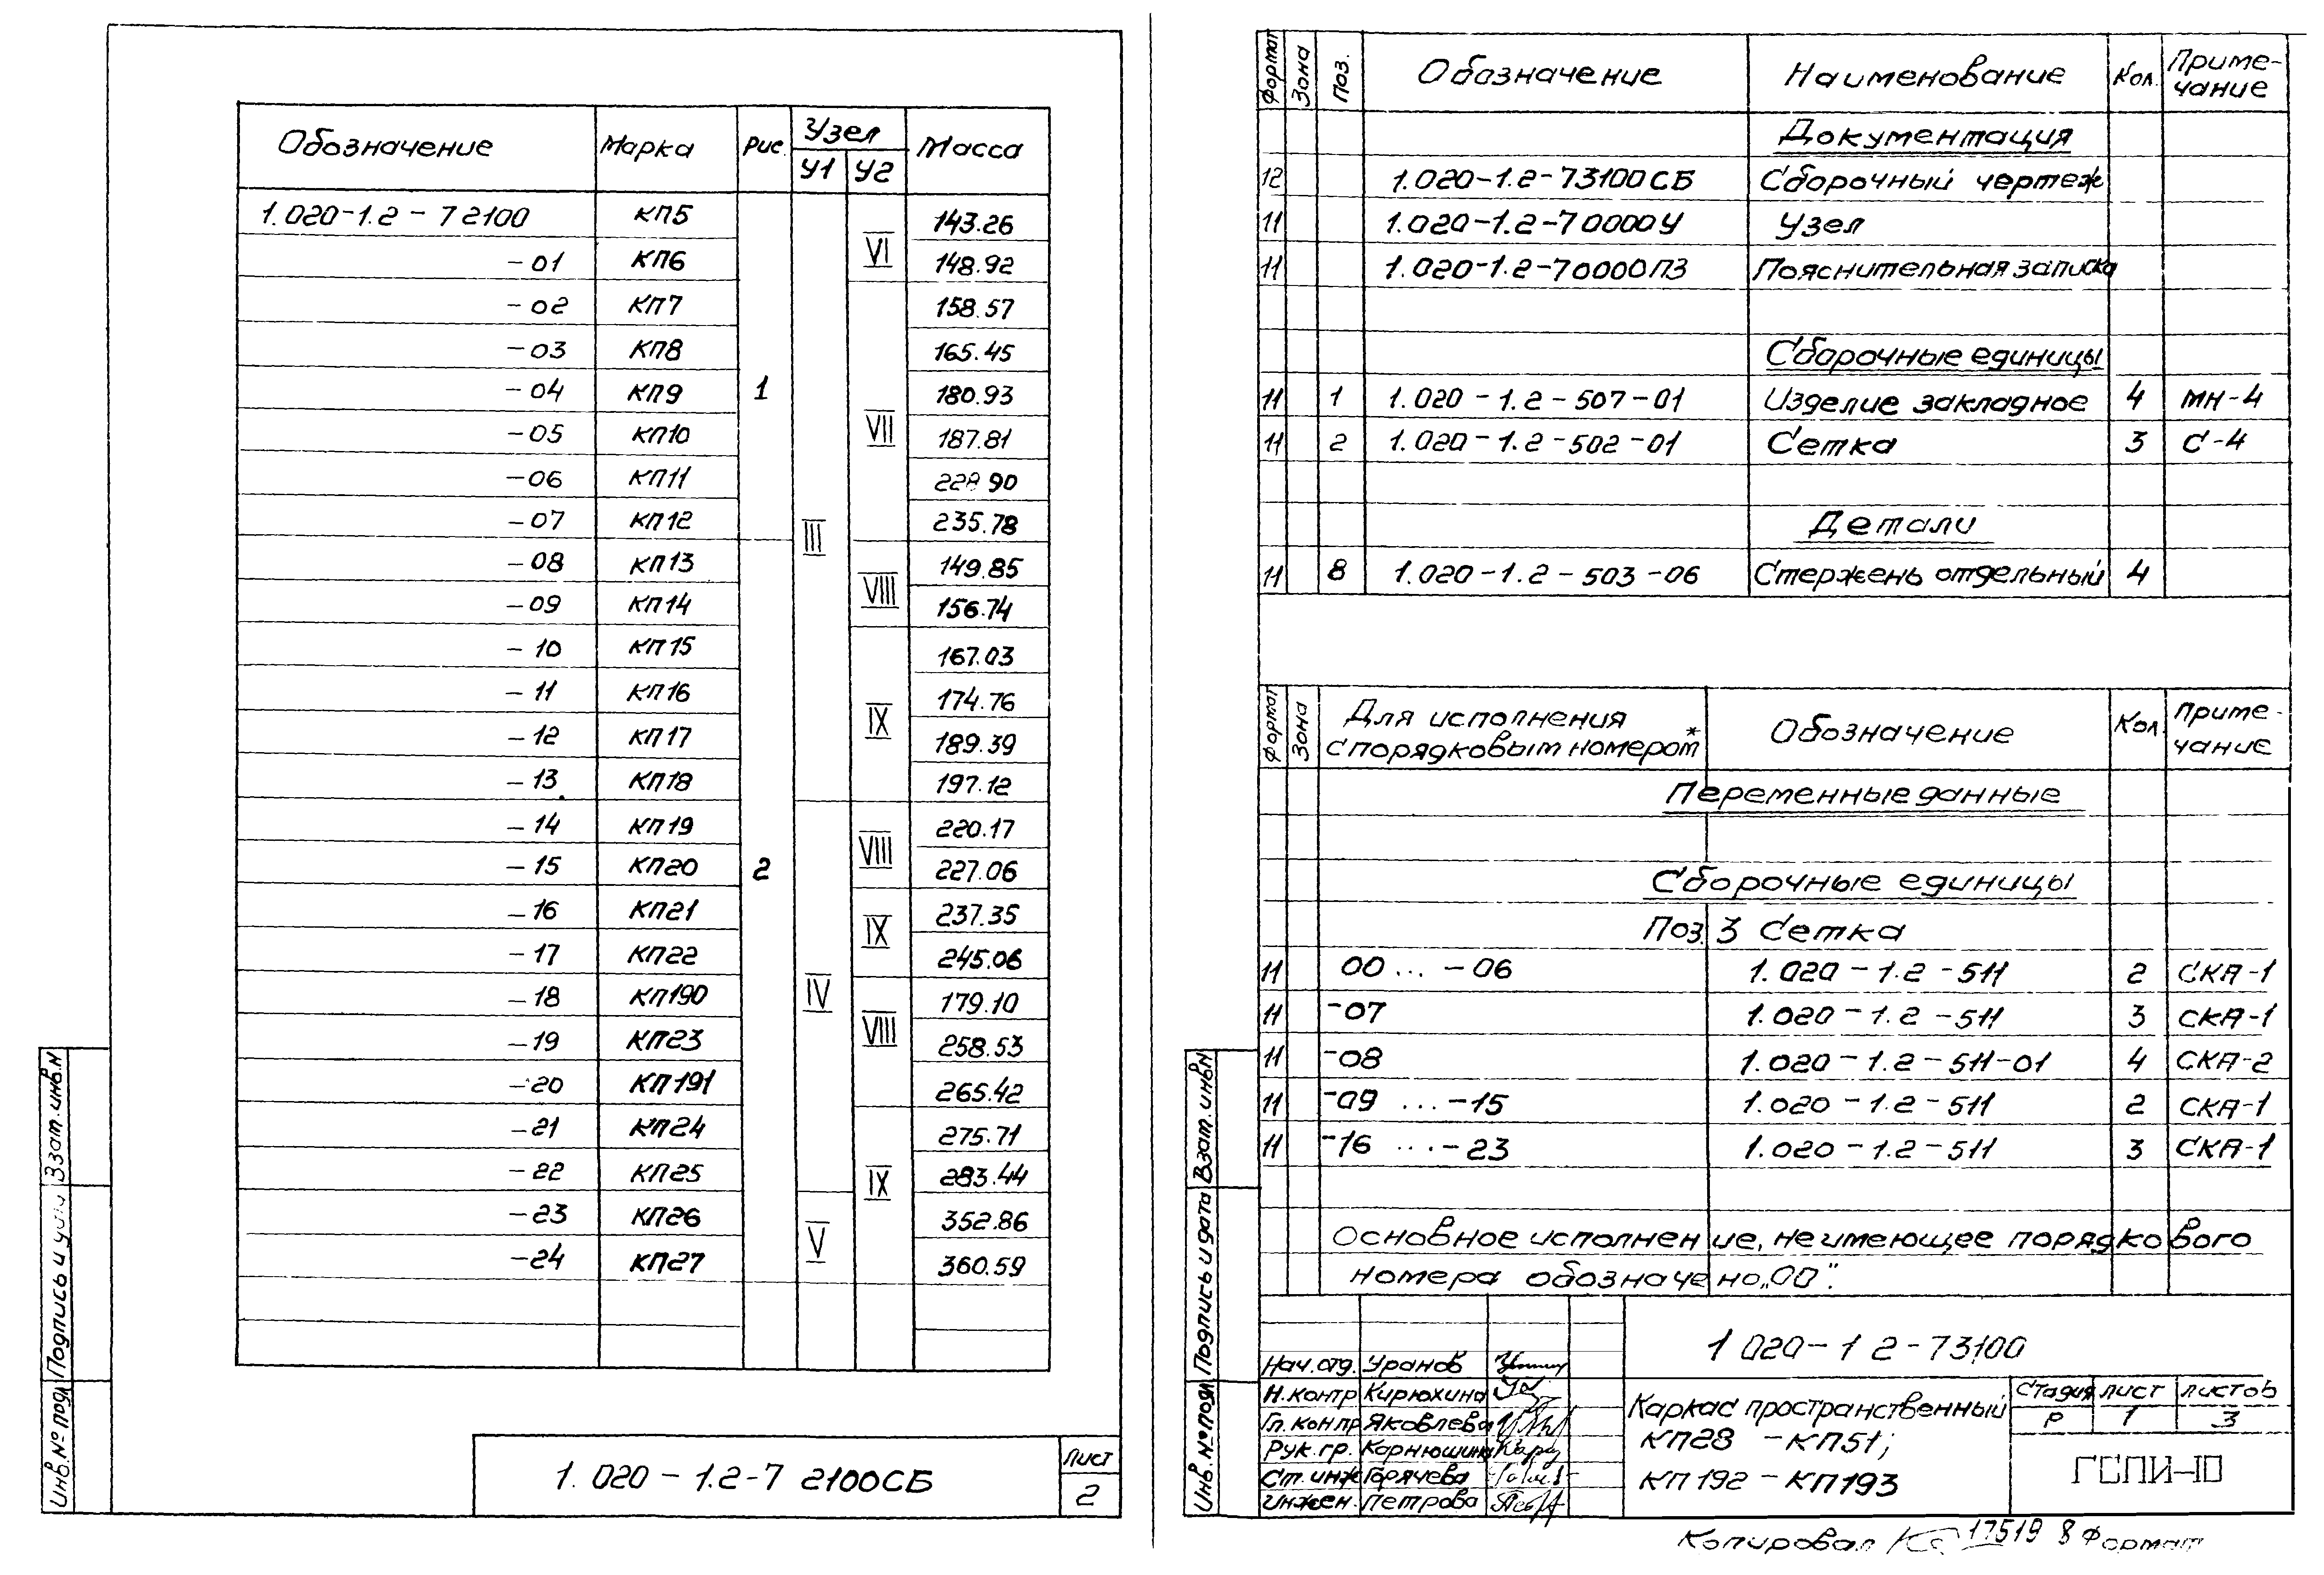 Обозначение Марка Рис. Узел Масса
У1 У2
1.020-1.2-72100 КП5 143.26
-01 КП6 VI 148.92
-02 КП7 158.57
-03 КП8 165.45
-04 КП9 1 180.93
-05 КП10 VII 187.81
-06 КП11 228.90
-07 КП12 III 235.78
-08 КП13 149.85
-09 КП14 VIII 156.74
-10 КП15 167.03
-11 КП16 174.76
-12 КП17 IX 189.39
-13 КП18 197.12
-14 КП19 220.17
-15 КП20 2 VIII 227.06
-16 КП21 237.35
-17 КП22 IX 245.06
-18 КП190 IV 179.10
-19 КП23 VIII 258.53
-20 КП191 265.42
-21 КП24 275.71
-22 КП25 IX 283.44
-23 КП26 352.86
-24 КП27 V 360.59
1.020-1.2-7 2100СБ
Лист
2
Инв.№ подл Подпись и Взат.инв.N
Формат Зона Поз. Обозначение Наименование Кол. Приме-
чание
Документация
12 1.020-1.2-73100СБ Сборочный чертеж
11 1.020-1.2-70000У Узел
11 1.020-1.2-70000ПЗ Пояснительная записка
Сборочные единицы
11 1 1.020-1.2-507-01 Изделие закладное 4 МН-4
11 2 1.020-1.2-502-01 Сетка 3 С-4
Детали
11 8 1.020-1.2-503-06 Стержень отдельный 4
Формат Зона Для исполнения Обозначение Кол Приме-
с порядковым номером* чание
Переменные данные
Сборочные единицы
Поз. 3 Сетка
11 00 ... -06 1.020-1.2-511 2 СКА-1
11 -07 1.020-1.2-511 3 СКА-1
11 -08 1.020-1.2-511-01 4 СКА-2
11 -09 ... -15 1.020-1.2-511 2 СКА-1
11 -16 ... -23 1.020-1.2-511 3 СКА-1
Основное исполнение, не имеющее порядкового
номера обозначено „00".
Инв.№ подл Подпись и дата Взат.инв.N
1 020-1 2-73100
Нач.отд. Уранов
Н.контр Кирюхина
Гл.констр Яковлева
Рук.гр. Корнюшина
Ст.инж Горячева
Инжен. Петрова
Каркас пространственный
КП28 -КП51;
КП192-КП193
Стадия Лист Листов
Р 1 3
ГСПИ-10
Копировал 17519 8 Формат